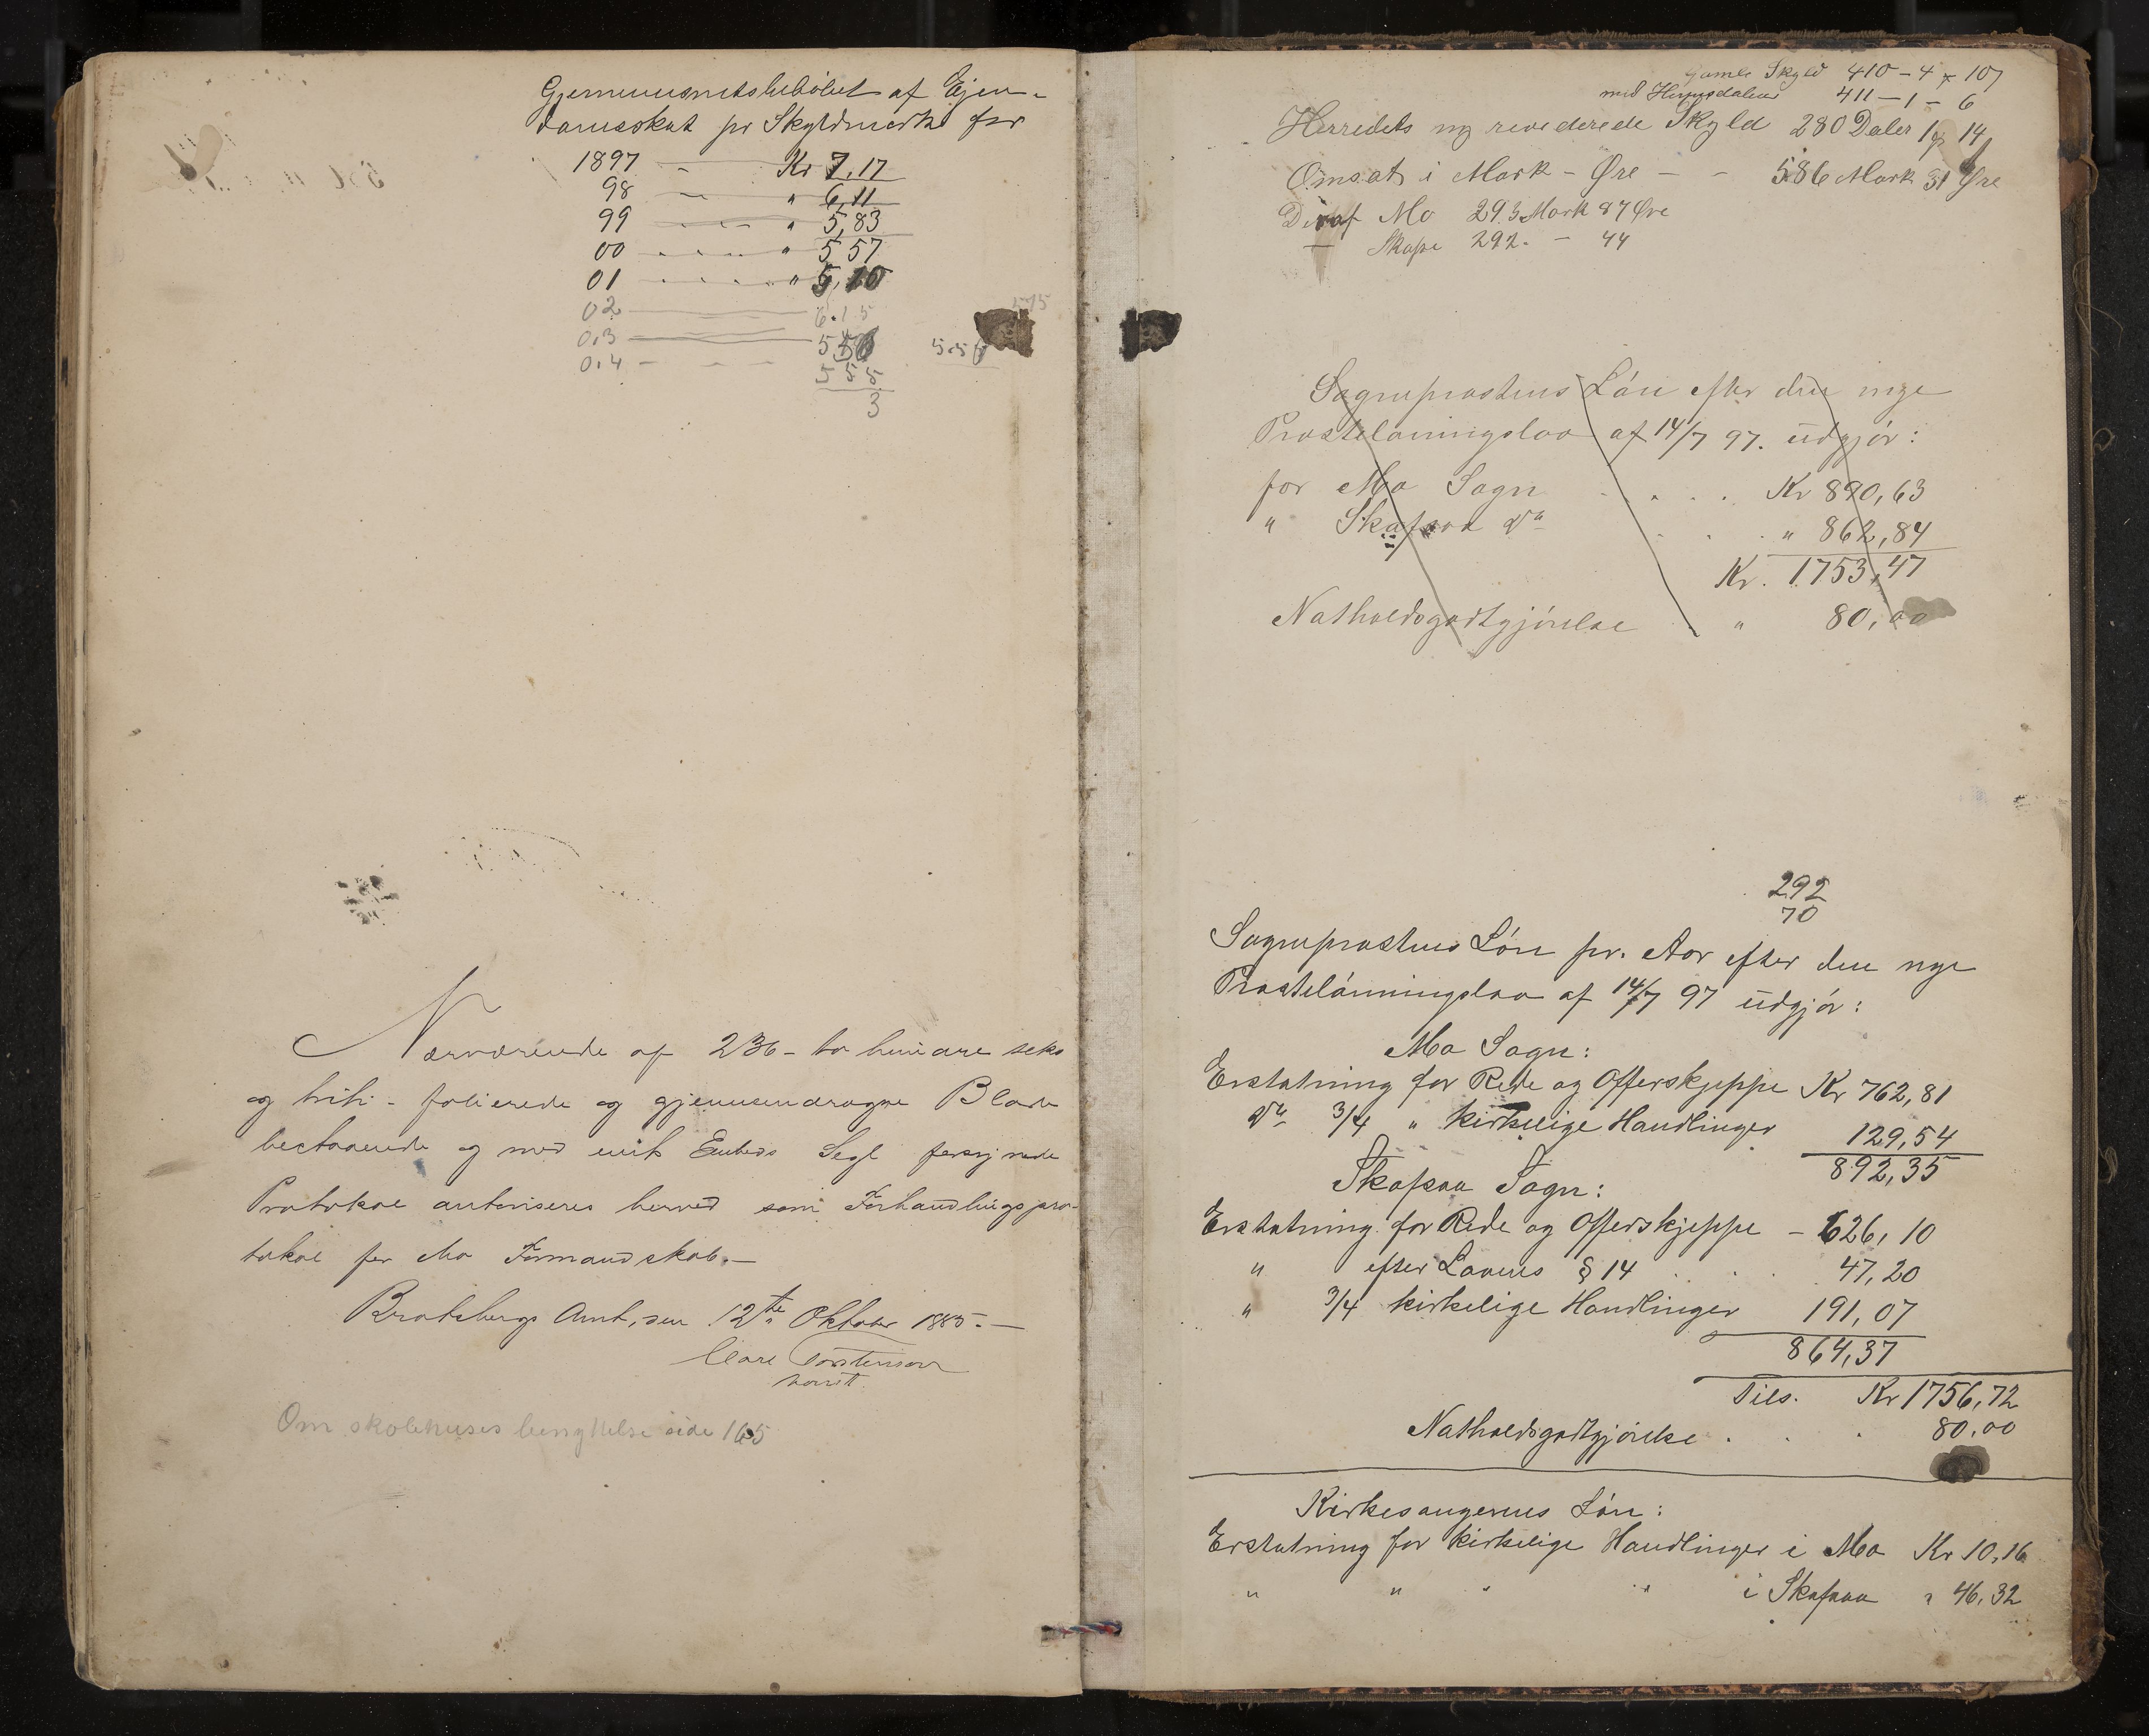 Gjennemsnitsbeløbet af Ejen-
damsskat pr Skyldmark for
1897 — Kr 7,17
98 — " 6,11
99 — " 5,83
00 — " 5 57
01 — " 5,10
02 — 6.15
03 — 5
04 — 5 55
3
Nærværende af 236 - to hundre seks
og triti - folierede og gjennemdragne Blade
bestaaende og med mit Embeds Segl forsynede
Protokol autoriseres herved som Forhandlingspro-
tokol for Mo Formandskab. —
Bratsberg Amt, den 12te Oktober 1885. —
const.
Om skolehuses benyttelse side 165
Gamle Skyld 410 - 4 - 107
med 411 - 1 - 6
Herredets ny reviderede Skyld 280 Daler 1 14
Omsat i Mark - Øre — - 586 Mark 31 Øre
Deraf Mo 293 Mark 87 Øre
Skafse 292. — 44
Sogneprestens Løn efter den nye
Prestelønningslov af 14/7 97. udgjør:
for Mo Sogn . . . . Kr 890,63
" Skafsaa do . . . " 862,84
Kr. 1753,47
Natholdsgodtgjørelse . " 80,00
292
70
Sogneprestens Løn pr. Aar efter den nye
Prestelønningslov af 14/7 97 udgjør:
Mo Sogn:
Erstatning for Rede og Offerskjeppe Kr 762,81
do 3/4 " kirkelige Handlinger 129,54
892,35
Skafsaa Sogn:
Erstatning for Rede og Offerskjeppe - 626,10
" efter Lovens § 14 . . . 47,20
" 3/4 kirkelige Handlinger 191,07
864,37
Tils. Kr 1756,72
Natholdsgodtgjørelse . . . 80,00
Kirkesangerens Løn:
Erstatning for kirkelige Handlinger i Mo Kr 10,16
" " " " i Skafsaa " 46,32